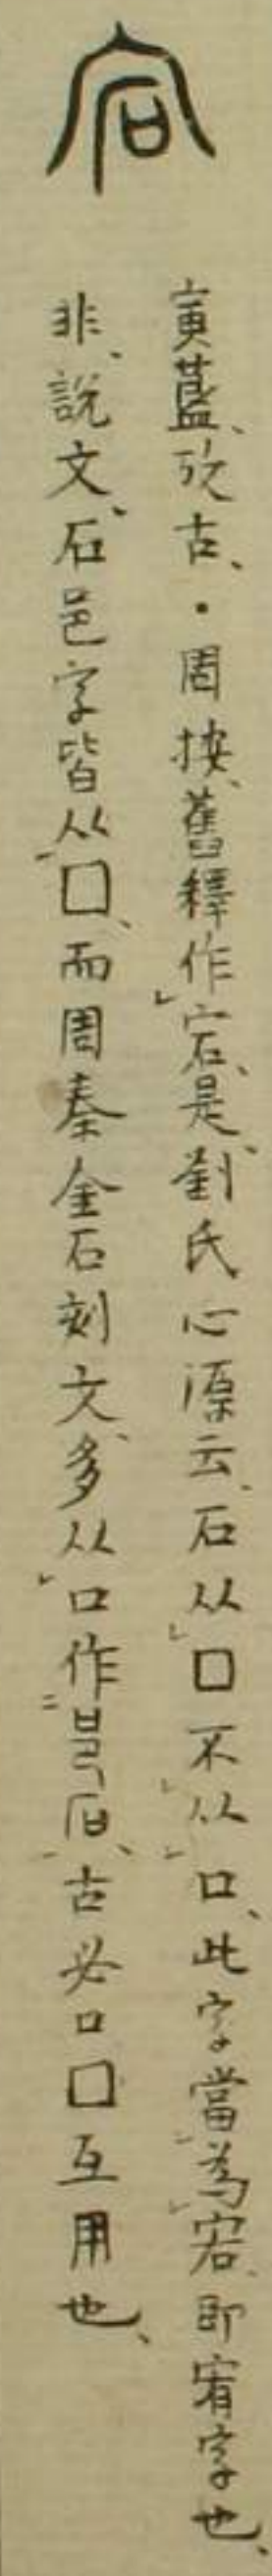 宕
寅簋、攷古、・周按、舊釋作宕、是、劉氏心源云、石从囗不从口、此字當為宕、即宥字也、
非、説文、石邑字皆从囗、而周秦金石刻文、多从口作邑石、古必口囗互用也、